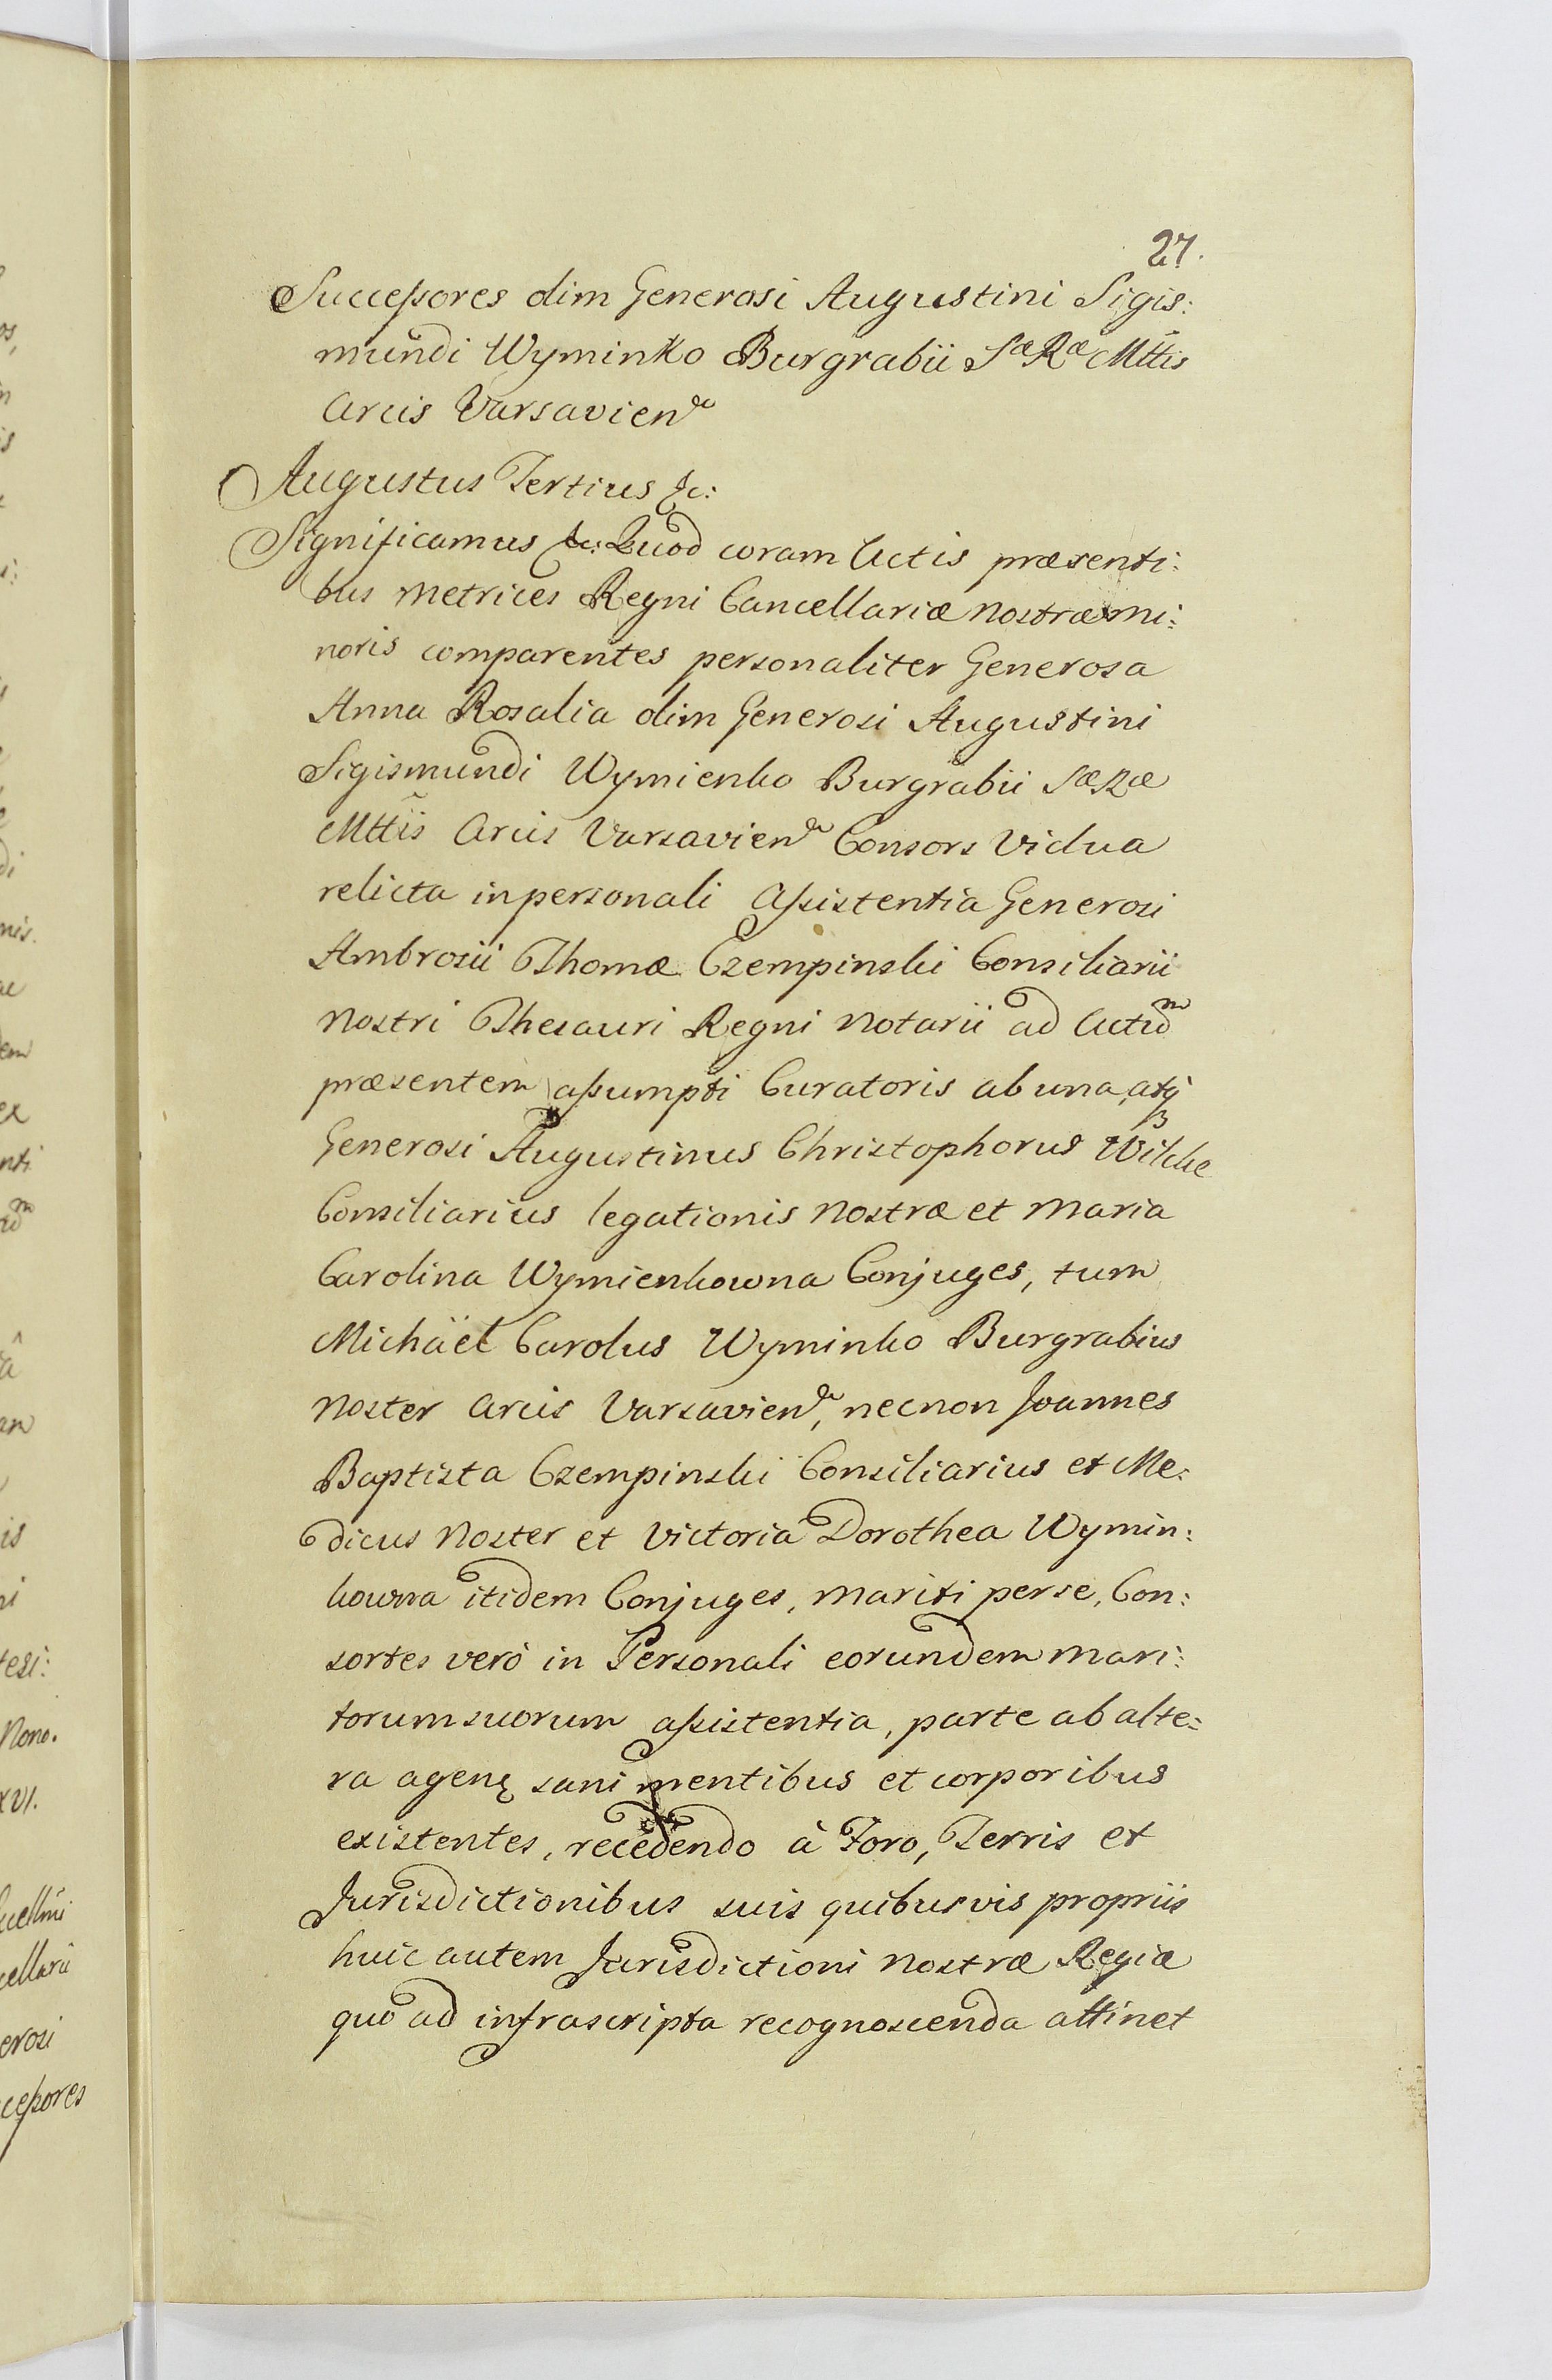 27.
Successores olim Generosi Augustini Sigis:
mundi Wyminko Burgrabii Sæ Ræ Mttis
Arcis Varsavien̄
Augustus Tertius &c:
Significamus &c: Quod coram Actis præsenti:
bus Metrices Regni Cancellariæ Nostræ Mi:
noris comparentes personaliter Generosa
Anna Rosalia olim Generosi Augustini
Sigismundi Wymienko Burgrabii Sæ Ræ
Mttis Arcis Varsavien̄ Consors Vidua
relicta in personali Assistentia Generosi
Ambrosii Thomæ Czempinski Consiliarii
Nostri Thesauri Regni Notarii ad Actum
præsentem assumpti Curatoris ab una, atq
Generosi Augustinus Christophorus Wilcke
Consiliarius legationis Nostræ et Maria
Carolina Wymienkowna Conjuges, tum
Michäel Carolus Wyminko Burgrabius
Noster Arcis Varsavien̄, necnon Joannes
Baptista Czempinski Consiliarius et Me:
dicus Noster et Victoria Dorothea Wymin:
kowna itidem Conjuges, Mariti per se, Con:
sortes verò in Personali eorundem Mari:
torum suorum assistentia, parte ab alte:
ra agen: sani mentibus et corporibus
existentes, recedendo à Foro, Terris et
Jurisdictionibus suis quibusvis propriis
huic autem Jurisdictioni Nostræ Regiæ
quo ad infrascripta recognoscenda attinet
os,
is
mis.
em
ex
nti
an
is
tesi:
Nono.
XVI.
cellarii
erosi
cessores